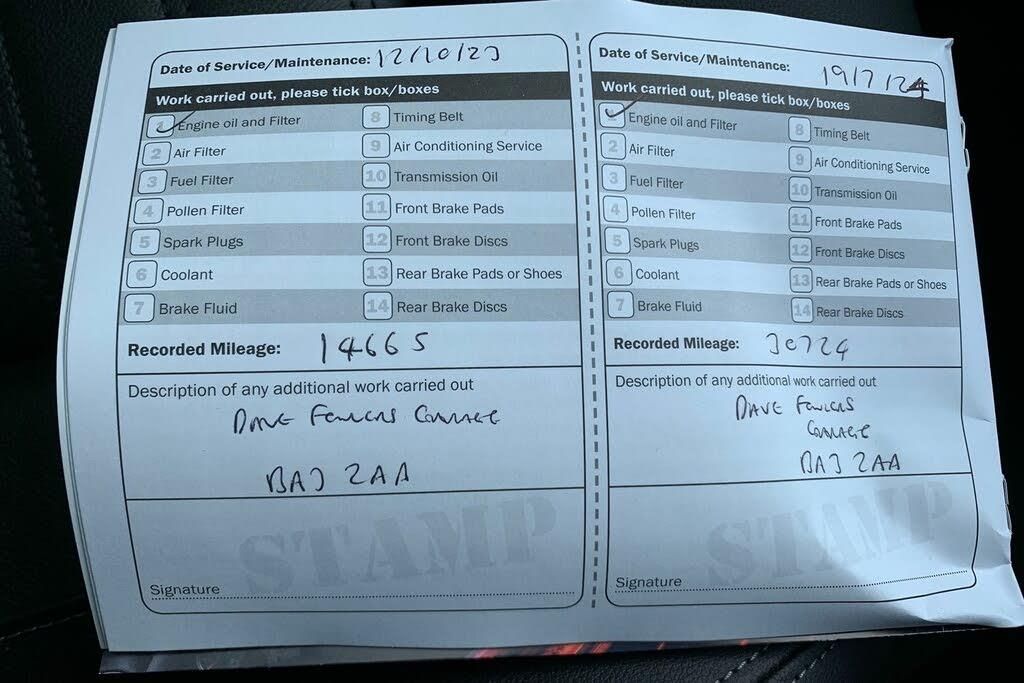 Date of Service/Maintenance: 12/10/23
Work carried out, please tick box/boxes
1 Engine oil and Filter
2 Air Filter
3 Fuel Filter
4 Pollen Filter
5 Spark Plugs
6 Coolant
7 Brake Fluid
8 Timing Belt
9 Air Conditioning Service
10 Transmission Oil
11 Front Brake Pads
12 Front Brake Discs
13 Rear Brake Pads or Shoes
14 Rear Brake Discs
Recorded Mileage: 14665
Description of any additional work carried out
DAVE FOWLERS GARAGE
BA3 2AA
STAMP
Signature
Date of Service/Maintenance: 19/7/24
Work carried out, please tick box/boxes
Engine oil and Filter
2 Air Filter
3 Fuel Filter
4 Pollen Filter
5 Spark Plugs
6 Coolant
7 Brake Fluid
8 Timing Belt
9 Air Conditioning Service
10 Transmission Oil
11 Front Brake Pads
12 Front Brake Discs
13 Rear Brake Pads or Shoes
14 Rear Brake Discs
Recorded Mileage: 30724
Description of any additional work carried out
DAVE FOWLERS
GARAGE
BA3 2AA
STAMP
Signature